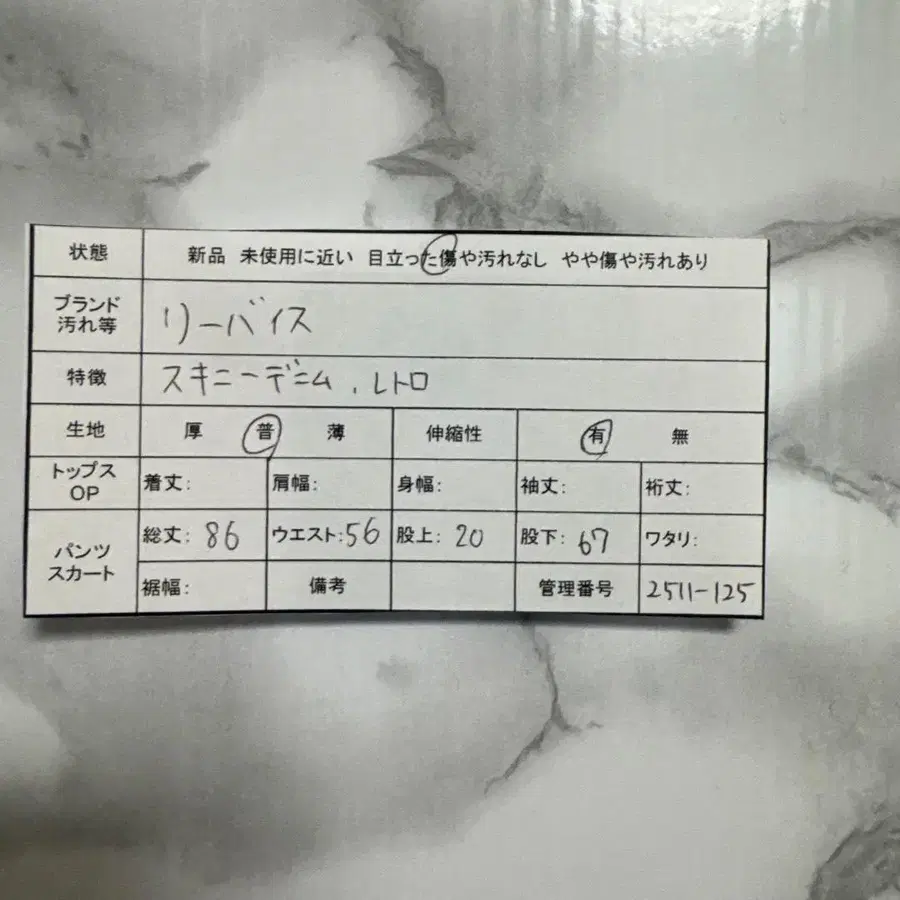 状態 新品 未使用に近い 目立った傷や汚れなし やや傷や汚れあり
ブランド
汚れ等 リーバイス
特徴 スキニーデニム、レトロ
生地 厚 普 薄 伸縮性 有 無
トップス
OP 着丈: 肩幅: 身幅: 袖丈: 裄丈:
パンツ
スカート 総丈: 86 ウエスト:56 股上: 20 股下: 67 ワタリ:
裾幅: 備考 管理番号 2511-125